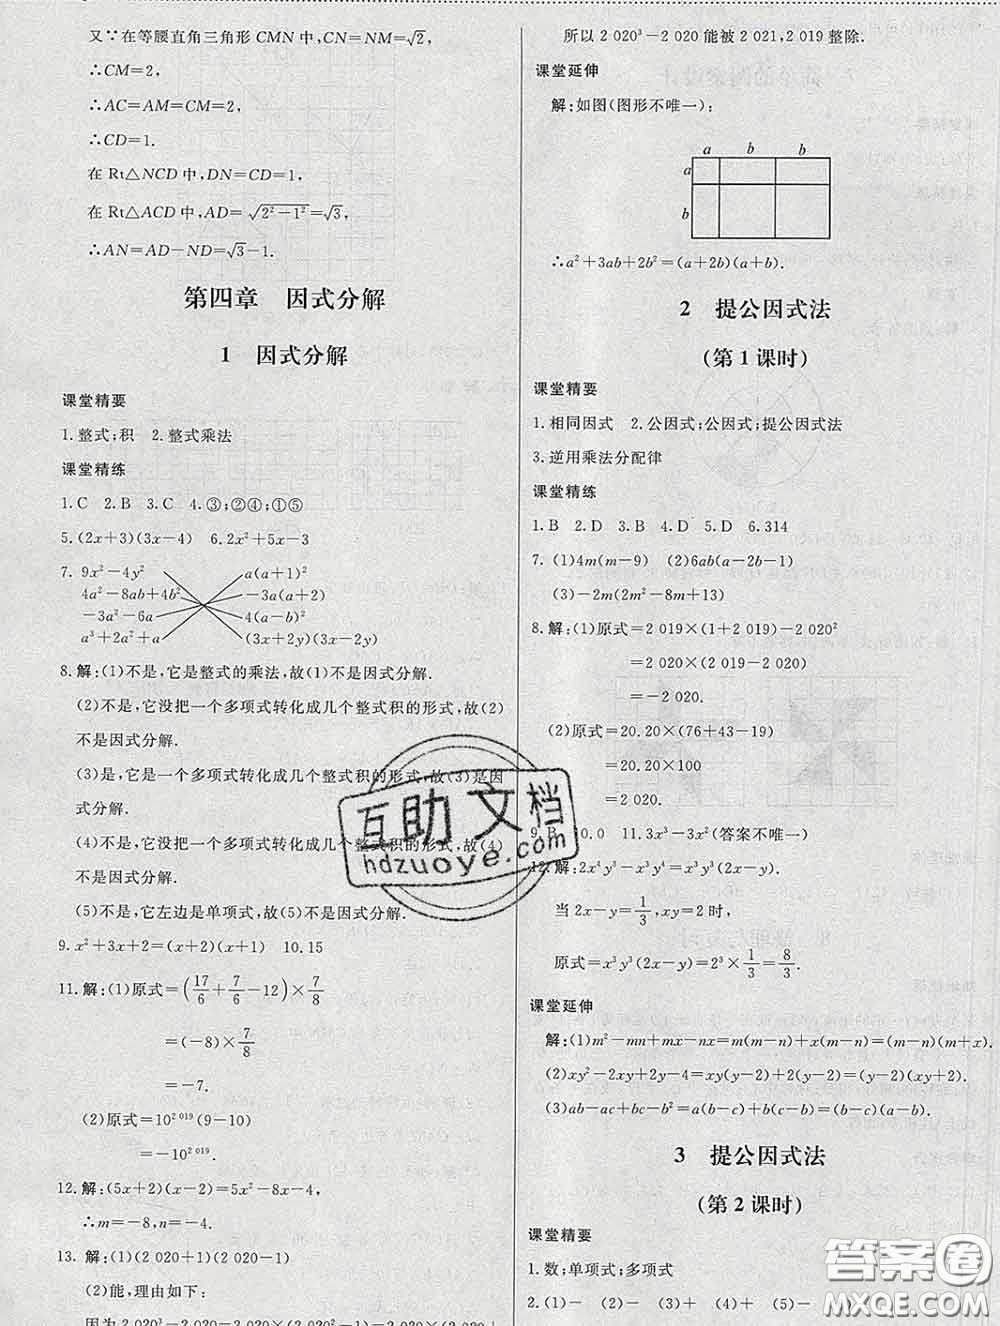 又∵在等腰直角三角形 CMN 中,CN=NM=√2,
∴CM=2,
∴AC=AM=CM=2,
∴CD=1.
在 Rt△NCD 中,DN=CD=1,
在 Rt△ACD 中,AD=√(2²-1²)=√3,
∴AN=AD-ND=√3-1.
第四章 因式分解
1 因式分解
课堂精要
1.整式;积 2.整式乘法
课堂精练
1.C 2.B 3.C 4.③;②④;①⑤
5.(2x+3)(3x-4) 6.2x²+5x-3
7. 9x²-4y² a(a+1)²
4a²-8ab+4b² -3a(a+2)
-3a²-6a 4(a-b)²
a³+2a²+a (3x+2y)(3x-2y)
8.解:(1)不是,它是整式的乘法,故(1)不是因式分解.
(2)不是,它没把一个多项式转化成几个整式积的形式,故(2)
不是因式分解.
(3)是,它是一个多项式转化成几个整式积的形式,故(3)是因
式分解.
(4)不是,它没把一个多项式转化成几个整式积的形式,故(4)
不是因式分解.
(5)不是,它左边是单项式,故(5)不是因式分解.
9.x²+3x+2=(x+2)(x+1) 10.15
11.解:(1)原式=(17/6+7/6-12)×7/8
=(-8)×7/8
=-7.
(2)原式=10^2 019(9-10)
=-10^2 019.
12.解:(5x+2)(x-2)=5x²-8x-4,
∴m=-8,n=-4.
13.解:(1)(2 020+1)(2 020-1)
(2)能,理由如下:
因为 2 020³-2 020=2 020×(2 020²-1)
所以 2 020³-2 020能被 2 021,2 019 整除.
课堂延伸
解:如图(图形不唯一):
a b b
a
b
∴a²+3ab+2b²=(a+2b)(a+b).
2 提公因式法
(第 1 课时)
课堂精要
1.相同因式 2.公因式;公因式;提公因式法
3.逆用乘法分配律
课堂精练
1.B 2.D 3.B 4.D 5.D 6.314
7.(1)4m(m-9) (2)6ab(a-2b-1)
(3)-2m(2m²-8m+13)
8.解:(1)原式=2 019×(1+2 019)-2 020²
=2 020×(2 019-2 020)
=-2 020.
(2)原式=20.20×(76+43-19)
=20.20×100
=2 020.
9.B 10.0 11.3x³-3x²(答案不唯一)
12.解:2x⁴y³-x³y⁴=x³y³(2x-y).
当 2x-y=1/3,xy=2 时,
原式=x³y³(2x-y)=2³×1/3=8/3.
课堂延伸
解:(1)m²-mn+mx-nx=m(m-n)+x(m-n)=(m-n)(m+x).
(2)xy²-2xy+2y-4=xy(y-2)+2(y-2)=(y-2)(xy+2).
(3)ab-ac+bc-b²=a(b-c)+b(c-b)=(b-c)(a-b).
3 提公因式法
(第 2 课时)
课堂精要
1.数;单项式;多项式
2.(1)- (2)- (3)+ (4)+ (5)-
互助文档
hdzuoye.com
答案圈
MXQE.COM